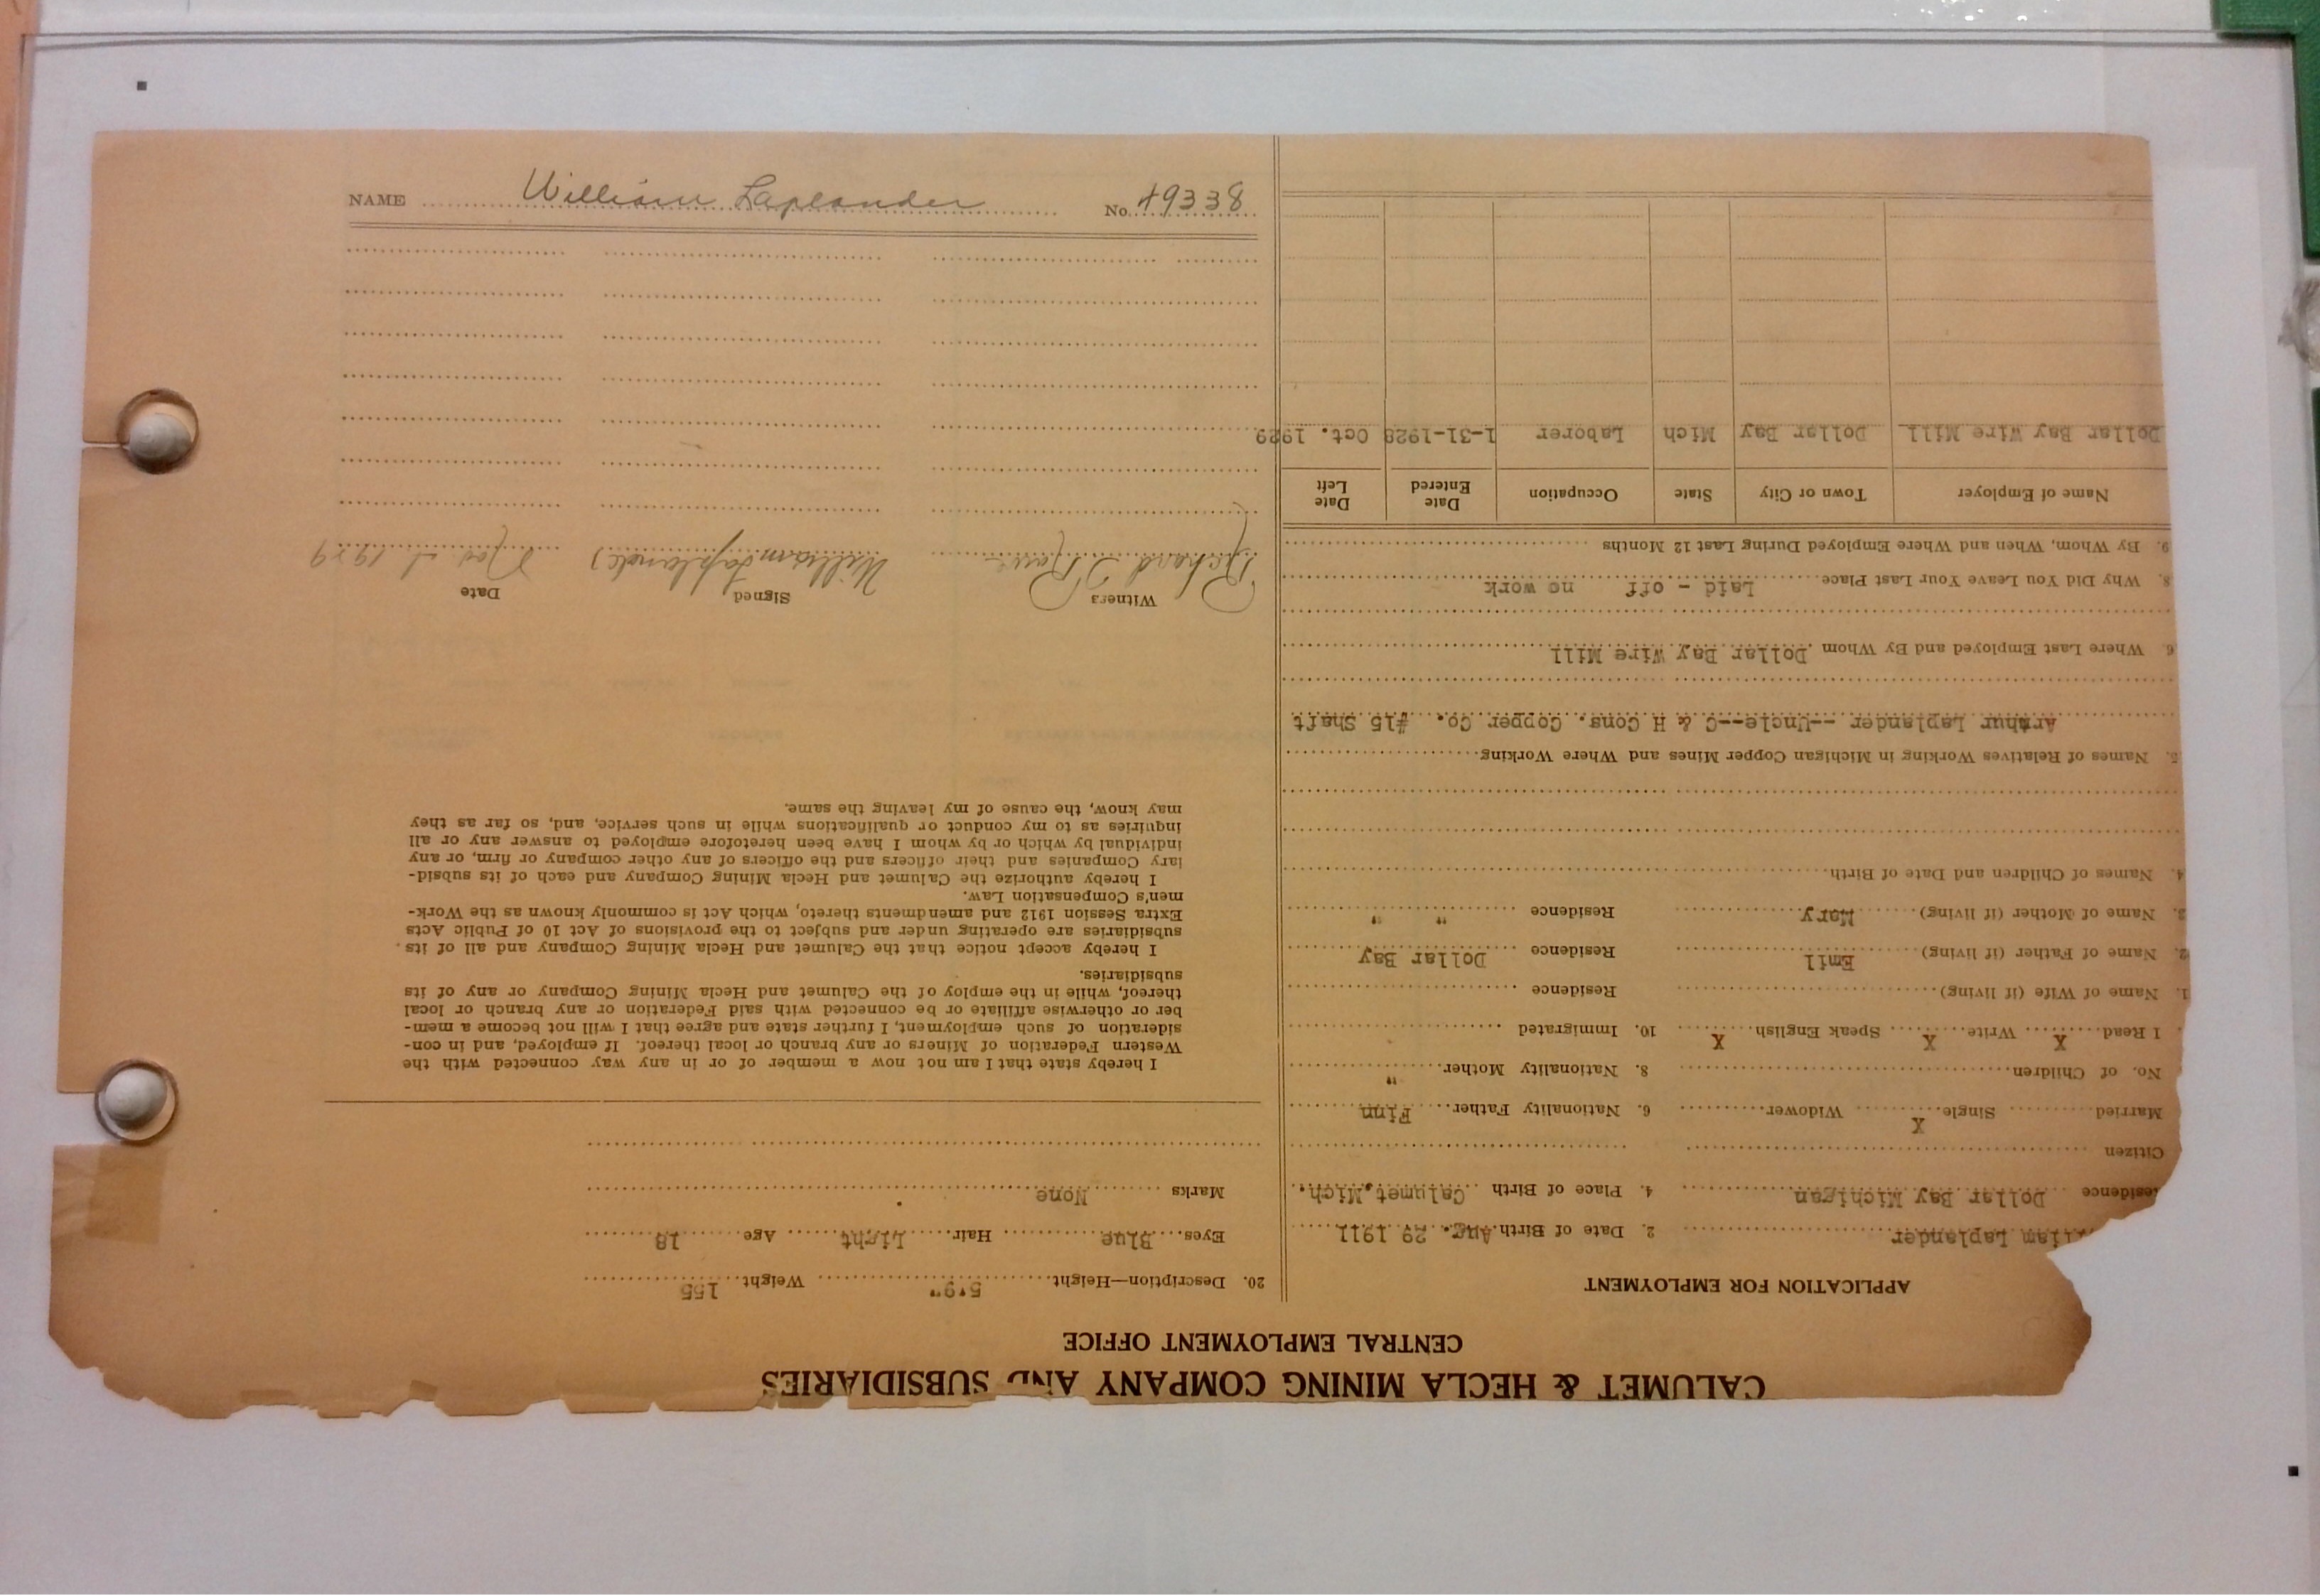 CALUMET & HECLA MINING COMPANY AND SUBSIDIARIES
CENTRAL EMPLOYMENT OFFICE
APPLICATION FOR EMPLOYMENT
Laplander 2. Date of Birth Aug. 29 1911
Residence Dollar Bay Michigan 4. Place of Birth Calumet, Mich.
Citizen
Married Single X Widower 6. Nationality Father Finn
No. of Children 8. Nationality Mother "
I Read X Write X Speak English X 10. Immigrated
1. Name of Wife (if living) Residence
2. Name of Father (if living) Emil Residence Dollar Bay
3. Name of Mother (if living) Mary Residence " "
4. Names of Children and Date of Birth
5. Names of Relatives Working in Michigan Copper Mines and Where Working
Arthur Laplander --Uncle--C & H Cons. Copper Co. #15 Shaft
6. Where Last Employed and By Whom Dollar Bay Wire Mill
8. Why Did You Leave Your Last Place Laid - off no work
9. By Whom, When and Where Employed During Last 12 Months
Name of Employer Town or City State Occupation Date Entered Date Left
Dollar Bay Wire Mill Dollar Bay Mich Laborer 1-31-1928 Oct. 1929
20. Description—Height 5'9" Weight 155
Eyes Blue Hair Light Age 18
Marks None
I hereby state that I am not now a member of or in any way connected with the
Western Federation of Miners or any branch or local thereof. If employed, and in con-
sideration of such employment, I further state and agree that I will not become a mem-
ber or otherwise affiliate or be connected with said Federation or any branch or local
thereof, while in the employ of the Calumet and Hecla Mining Company or any of its
subsidiaries.
I hereby accept notice that the Calumet and Hecla Mining Company and all of its
subsidiaries are operating under and subject to the provisions of Act 10 of Public Acts
Extra Session 1912 and amendments thereto, which Act is commonly known as the Work-
men's Compensation Law.
I hereby authorize the Calumet and Hecla Mining Company and each of its subsid-
iary Companies and their officers and the officers of any other company or firm, or any
individual by which or by whom I have been heretofore employed to answer any or all
inquiries as to my conduct or qualifications while in such service, and, so far as they
may know, the cause of my leaving the same.
Witness Signed Date
Richard William Laplander 1929
NAME William Laplander No. 49338